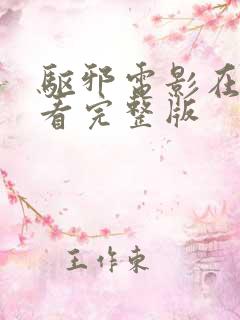 驅邪電影在
看完整版
王作東